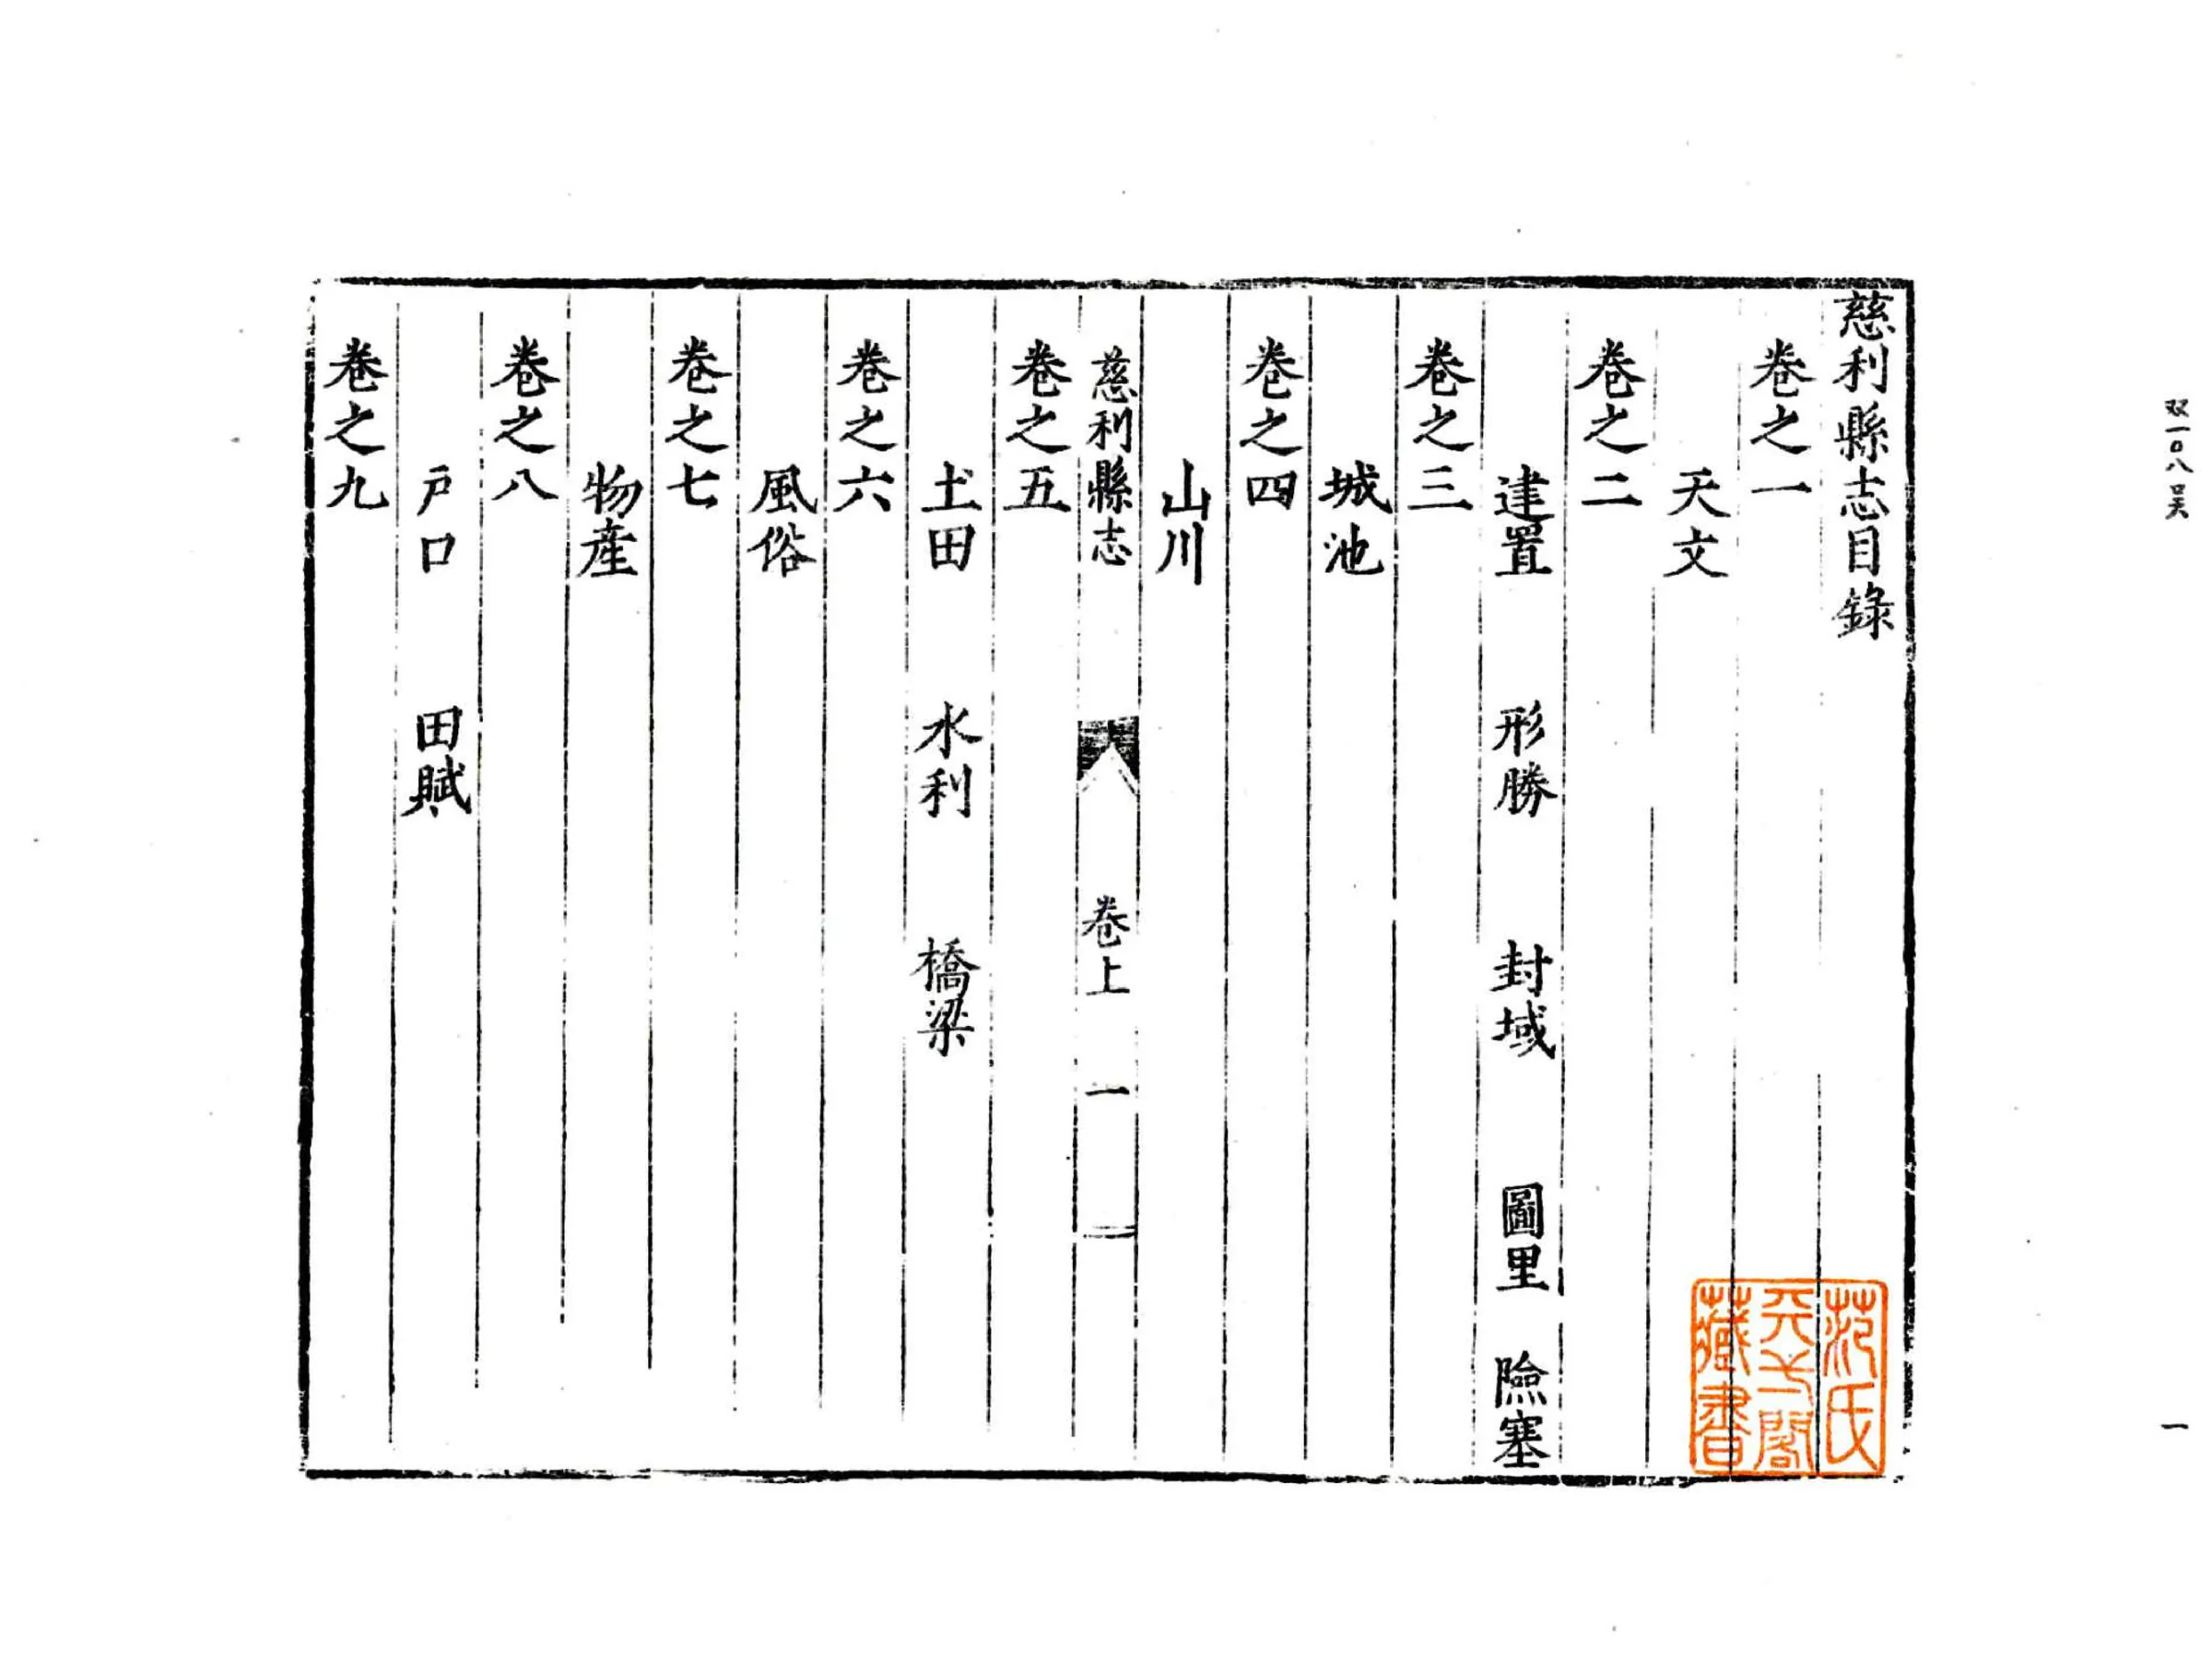 慈利縣志目錄
卷之一
天文
卷之二
建置 形勝 封域 圖里 險塞
卷之三
城池
卷之四
山川
慈利縣志 卷上 一
卷之五
土田 水利 橋梁
卷之六
風俗
卷之七
物產
卷之八
戶口 田賦
卷之九
范氏
天一閣
藏書
一